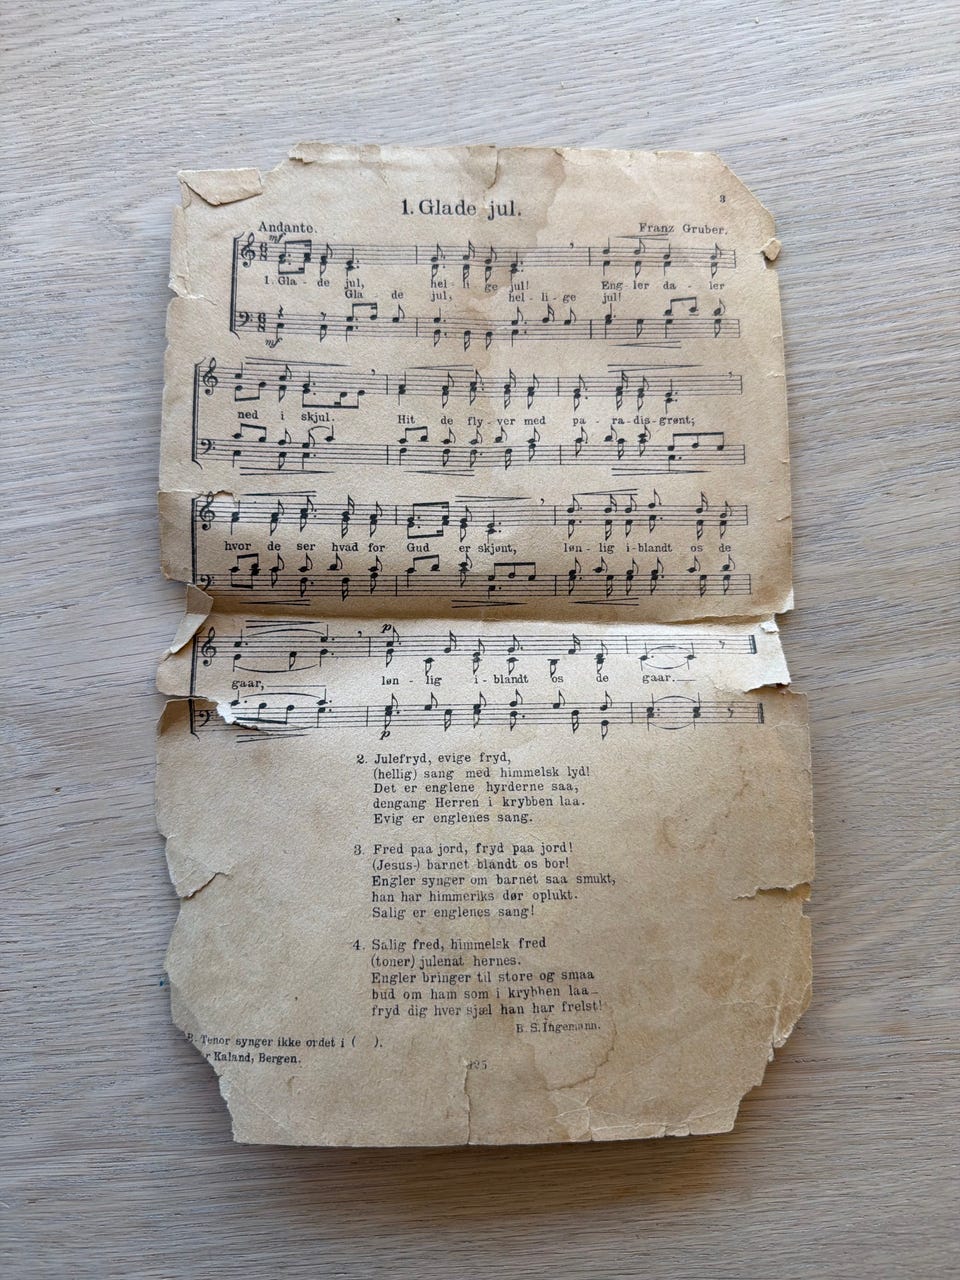 3
1. Glade jul.
Andante.
Franz Gruber.
mf
1. Gla - de jul, hel - li ge jul! Eng - ler da - ler
Gla de jul, hel - li - ge jul!
mf
ned i skjul. Hit de fly - ver med pa - ra - dis - grønt;
hvor de ser hvad for Gud er skjønt, løn - lig i - blandt os de
p
gaar, løn - lig i - blandt os de gaar.
p
2. Julefryd, evige fryd,
(hellig) sang med himmelsk lyd!
Det er englene hyrderne saa,
dengang Herren i krybben laa.
Evig er englenes sang.
3. Fred paa jord, fryd paa jord!
(Jesus-) barnet blandt os bor!
Engler synger om barnet saa smukt,
han har himmeriks dør oplukt.
Salig er englenes sang!
4. Salig fred, himmelsk fred
(toner) julenat hernes.
Engler bringer til store og smaa
bud om ham som i krybben laa
fryd dig hver sjæl han har frelst!
B. S. Ingemann.
B. Tenor synger ikke ordet i ( ).
r Kaland, Bergen.